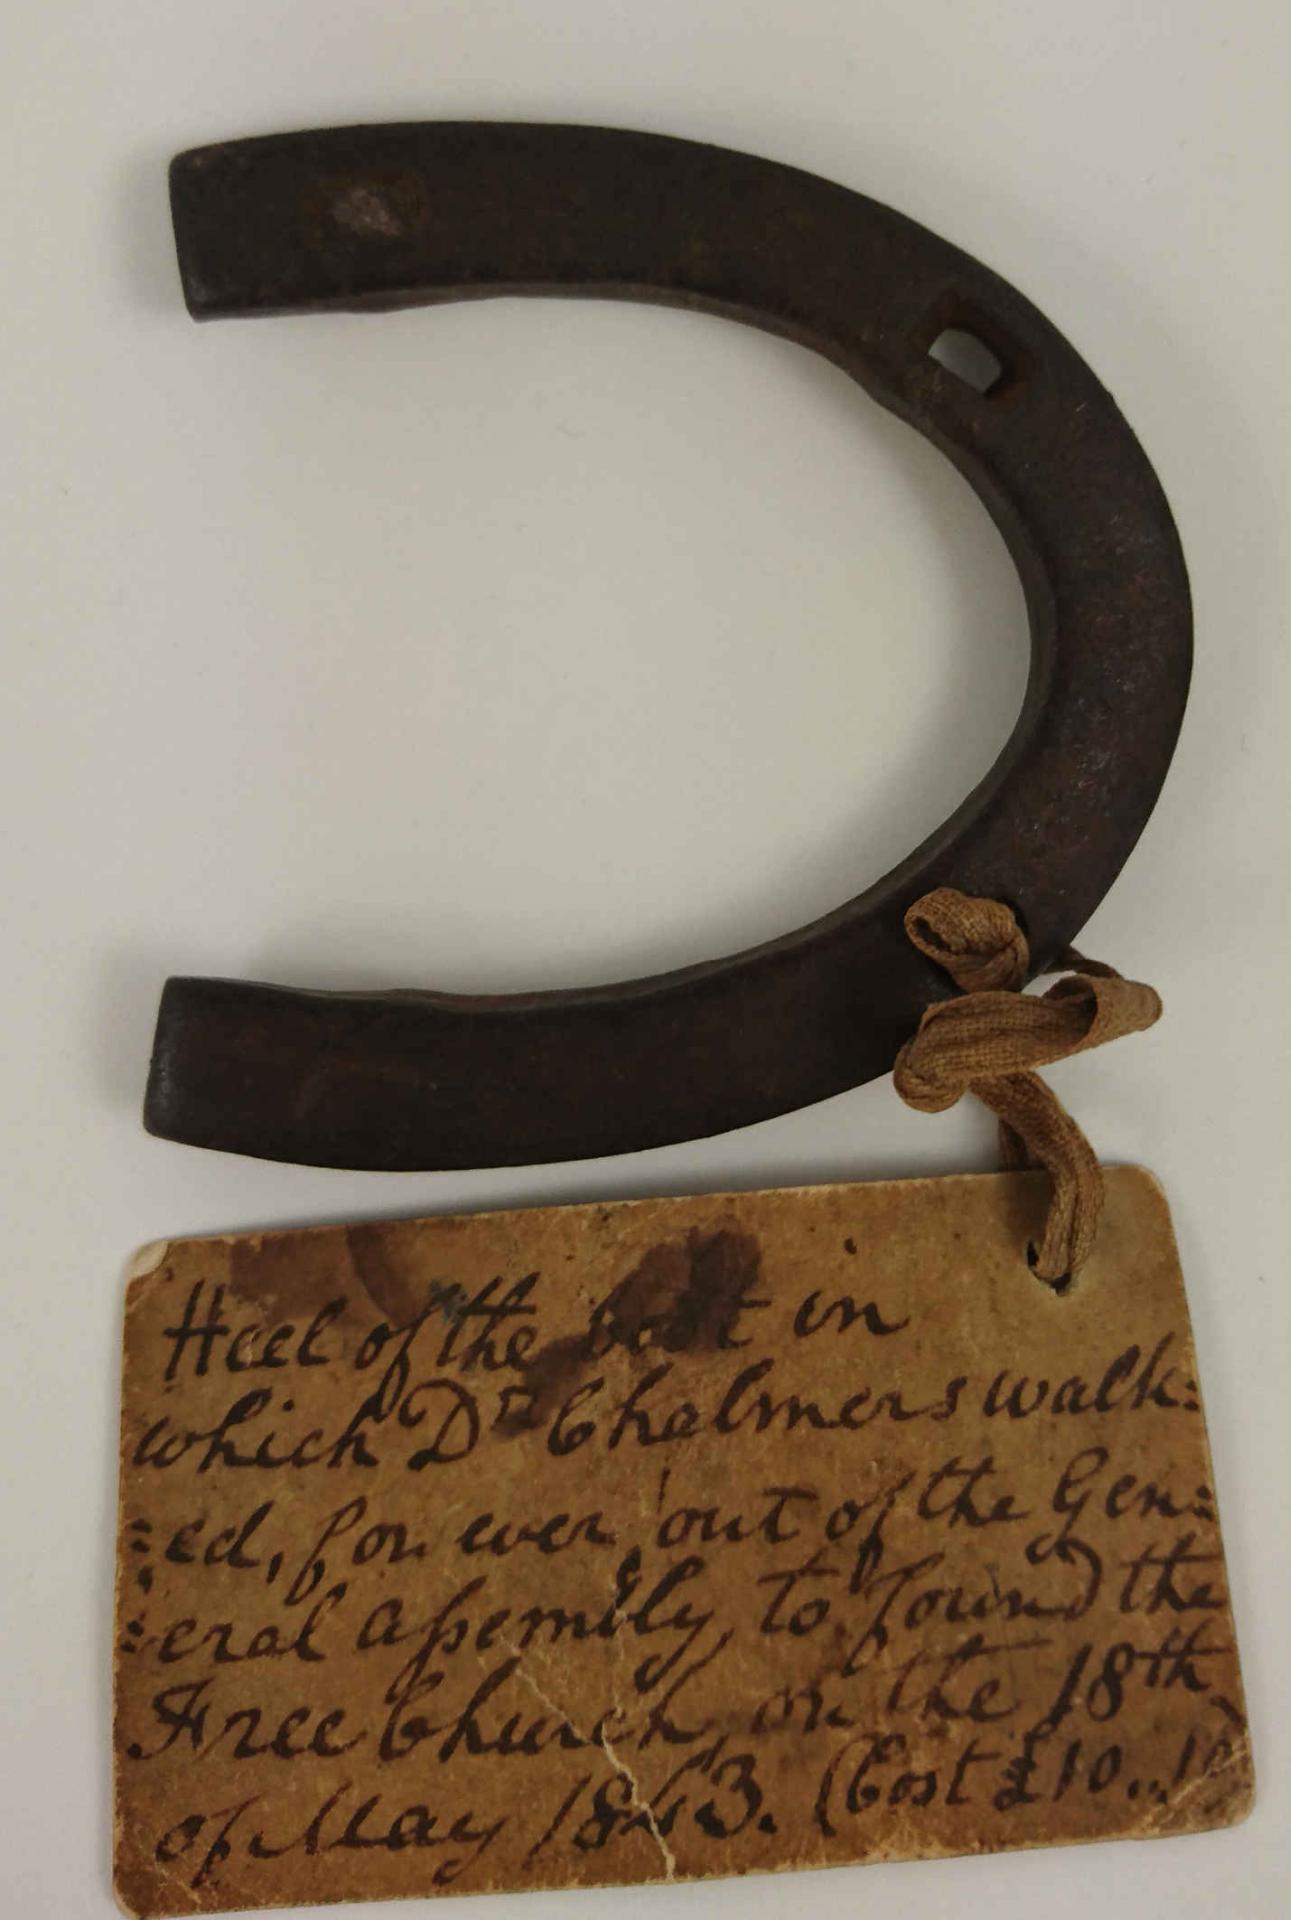 Heel of the boot in
which Dr Chalmers walk=
=ed, for ever, out of the Gen=
=eral assembly, to found the
Free Church, on the 18th
of May 1843. (Cost £10..10)